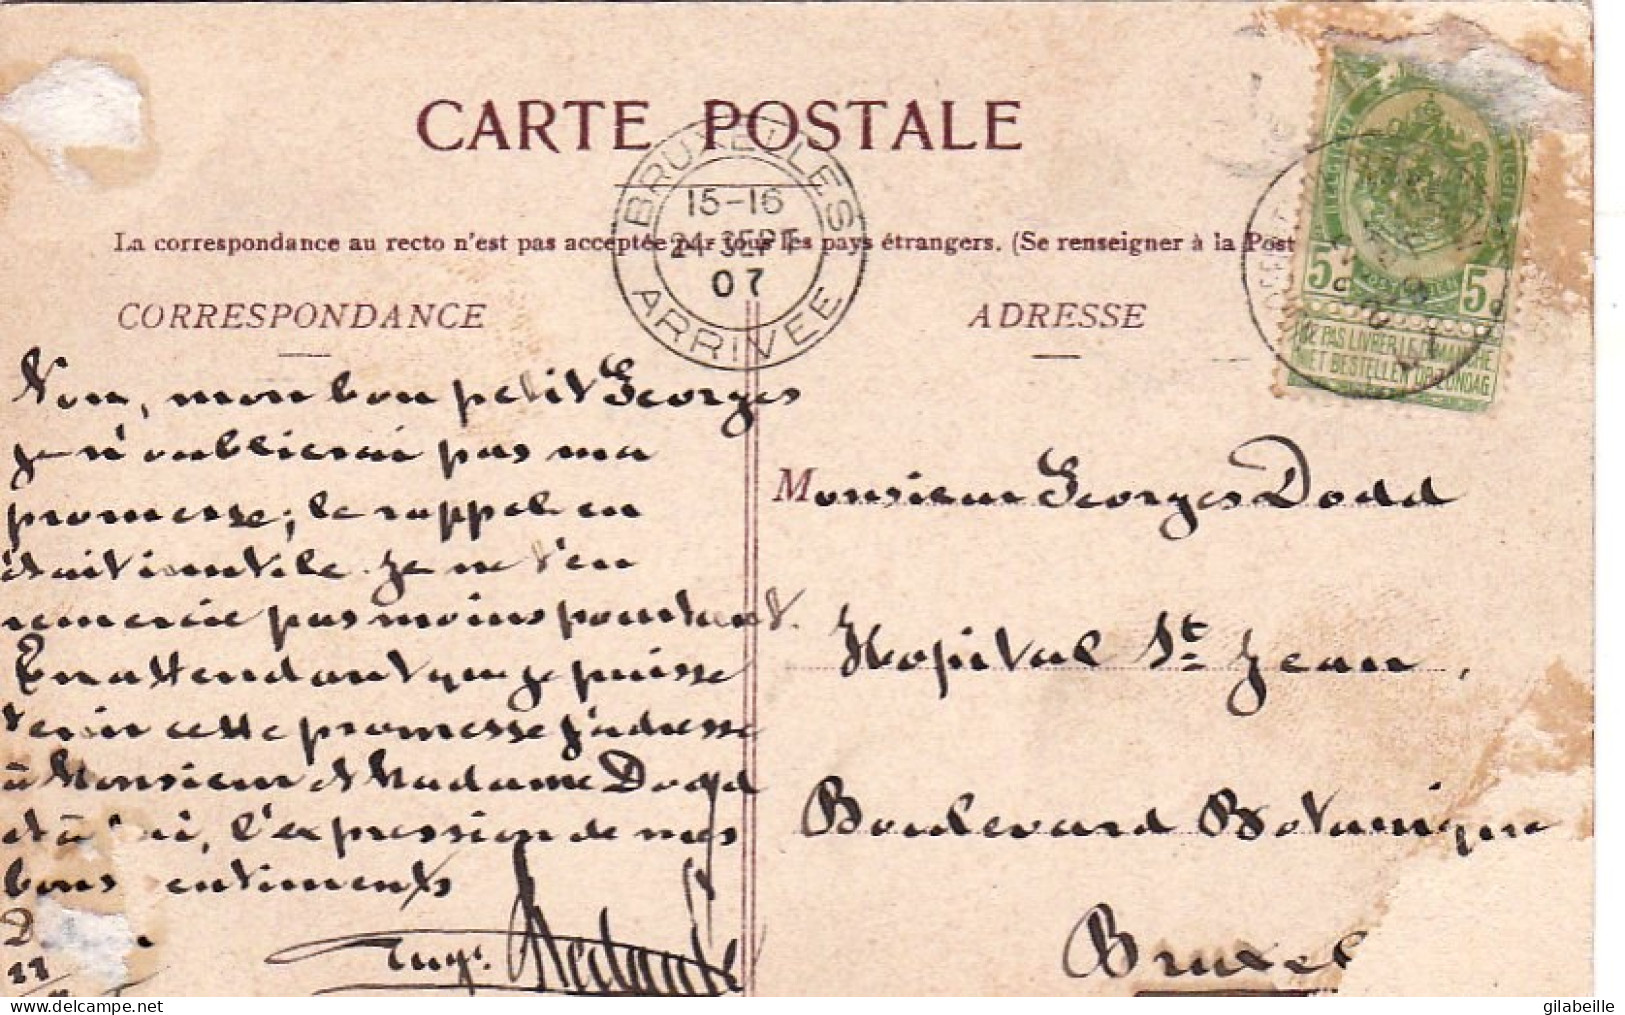 CARTE POSTALE
BRUXELLES
15-16
24 SEPT
07
ARRIVEE
La correspondance au recto n'est pas acceptée par tous les pays étrangers. (Se renseigner à la Post
CORRESPONDANCE
ADRESSE
5c 5c
NE PAS LIVRER LE DIMANCHE
NIET BESTELLEN OP ZONDAG
Non, mon bon petit Georges
je n'oublierai pas ma
promesse; le rappel en
était inutile. Je ne t'en
remercie pas moins pourtant.
En attendant que je puisse
tenir cette promesse j'adresse
à Monsieur et Madame Dodd
et à toi, l'expression de mes
bons sentiments
Monsieur Georges Dodd
Hopital St Jean,
Boulevard Botanique
Bruxel
11
Eug.
delcampe.net
gilabeille